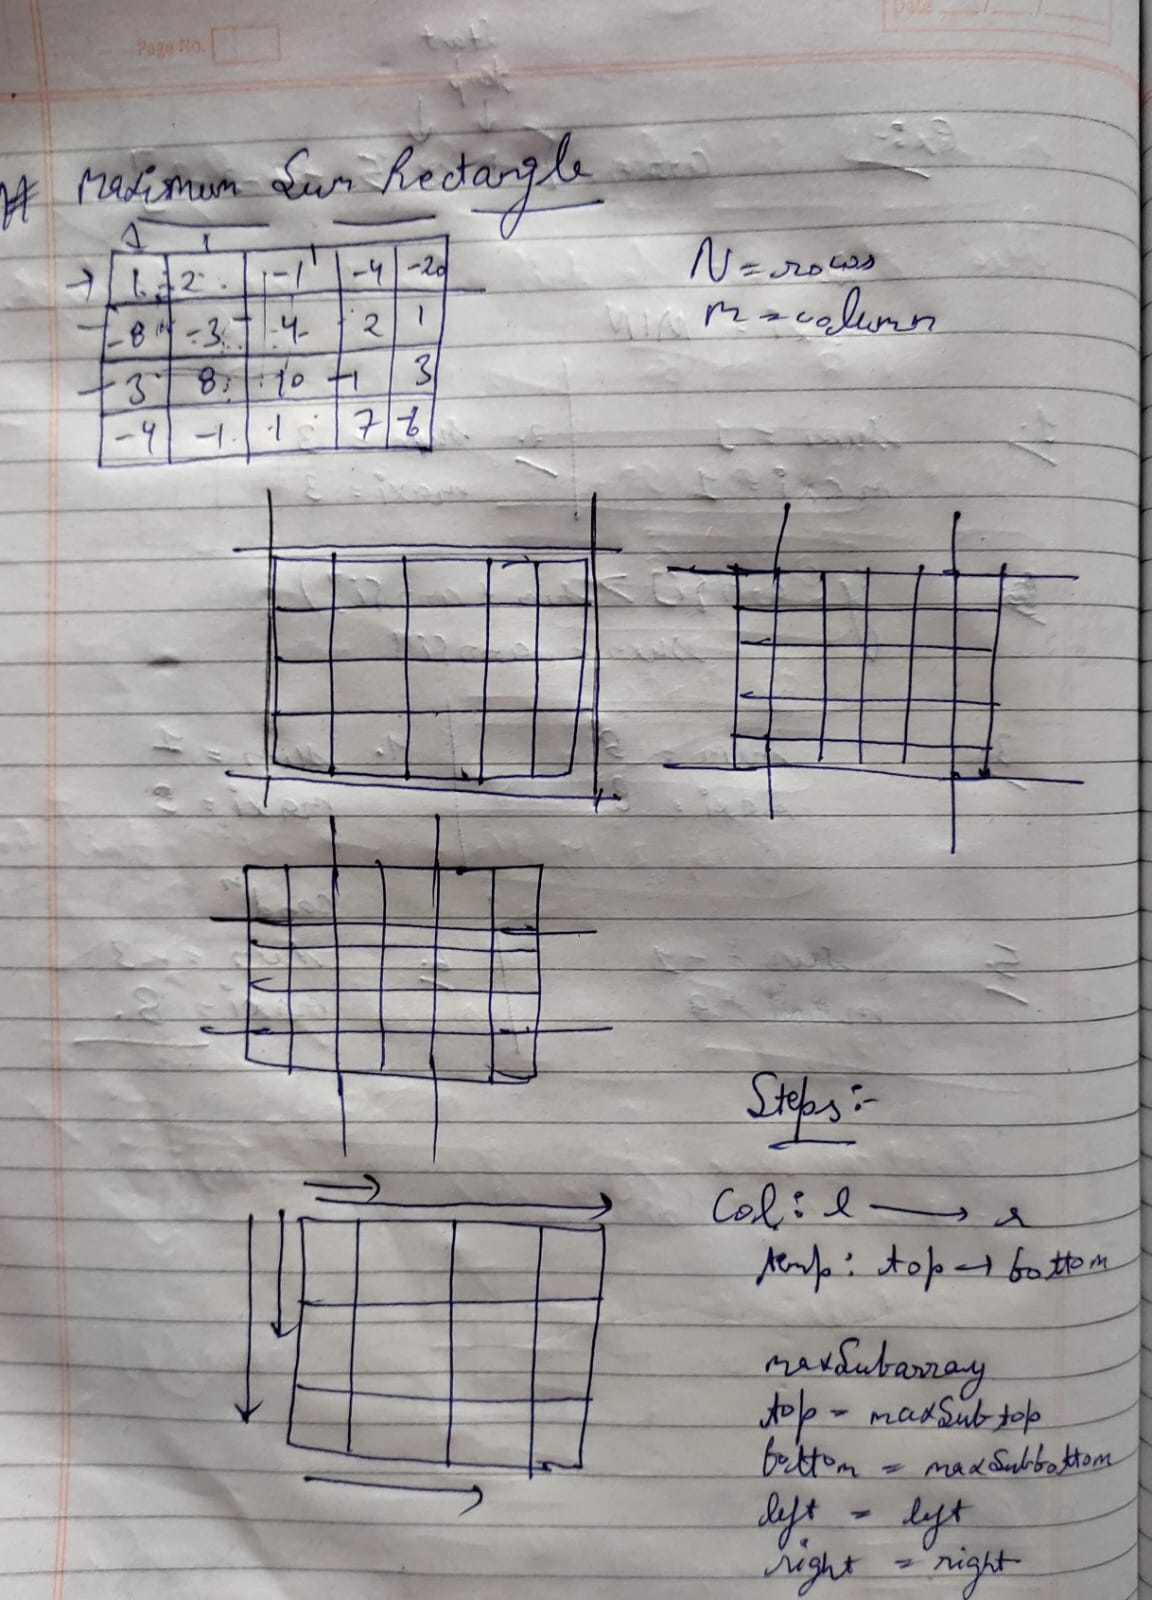 Page No.
Date
# Maximum Sum Rectangle
1 2 -1 -4 -20
-8 -3 4 2 1
3 8 10 -1 3
-4 -1 1 7 -6
N = rows
m = column
Steps :-
Col : l → r
temp : top → bottom
maxSubarray
top = maxSub top
bottom = maxSubbottom
left = left
right = right